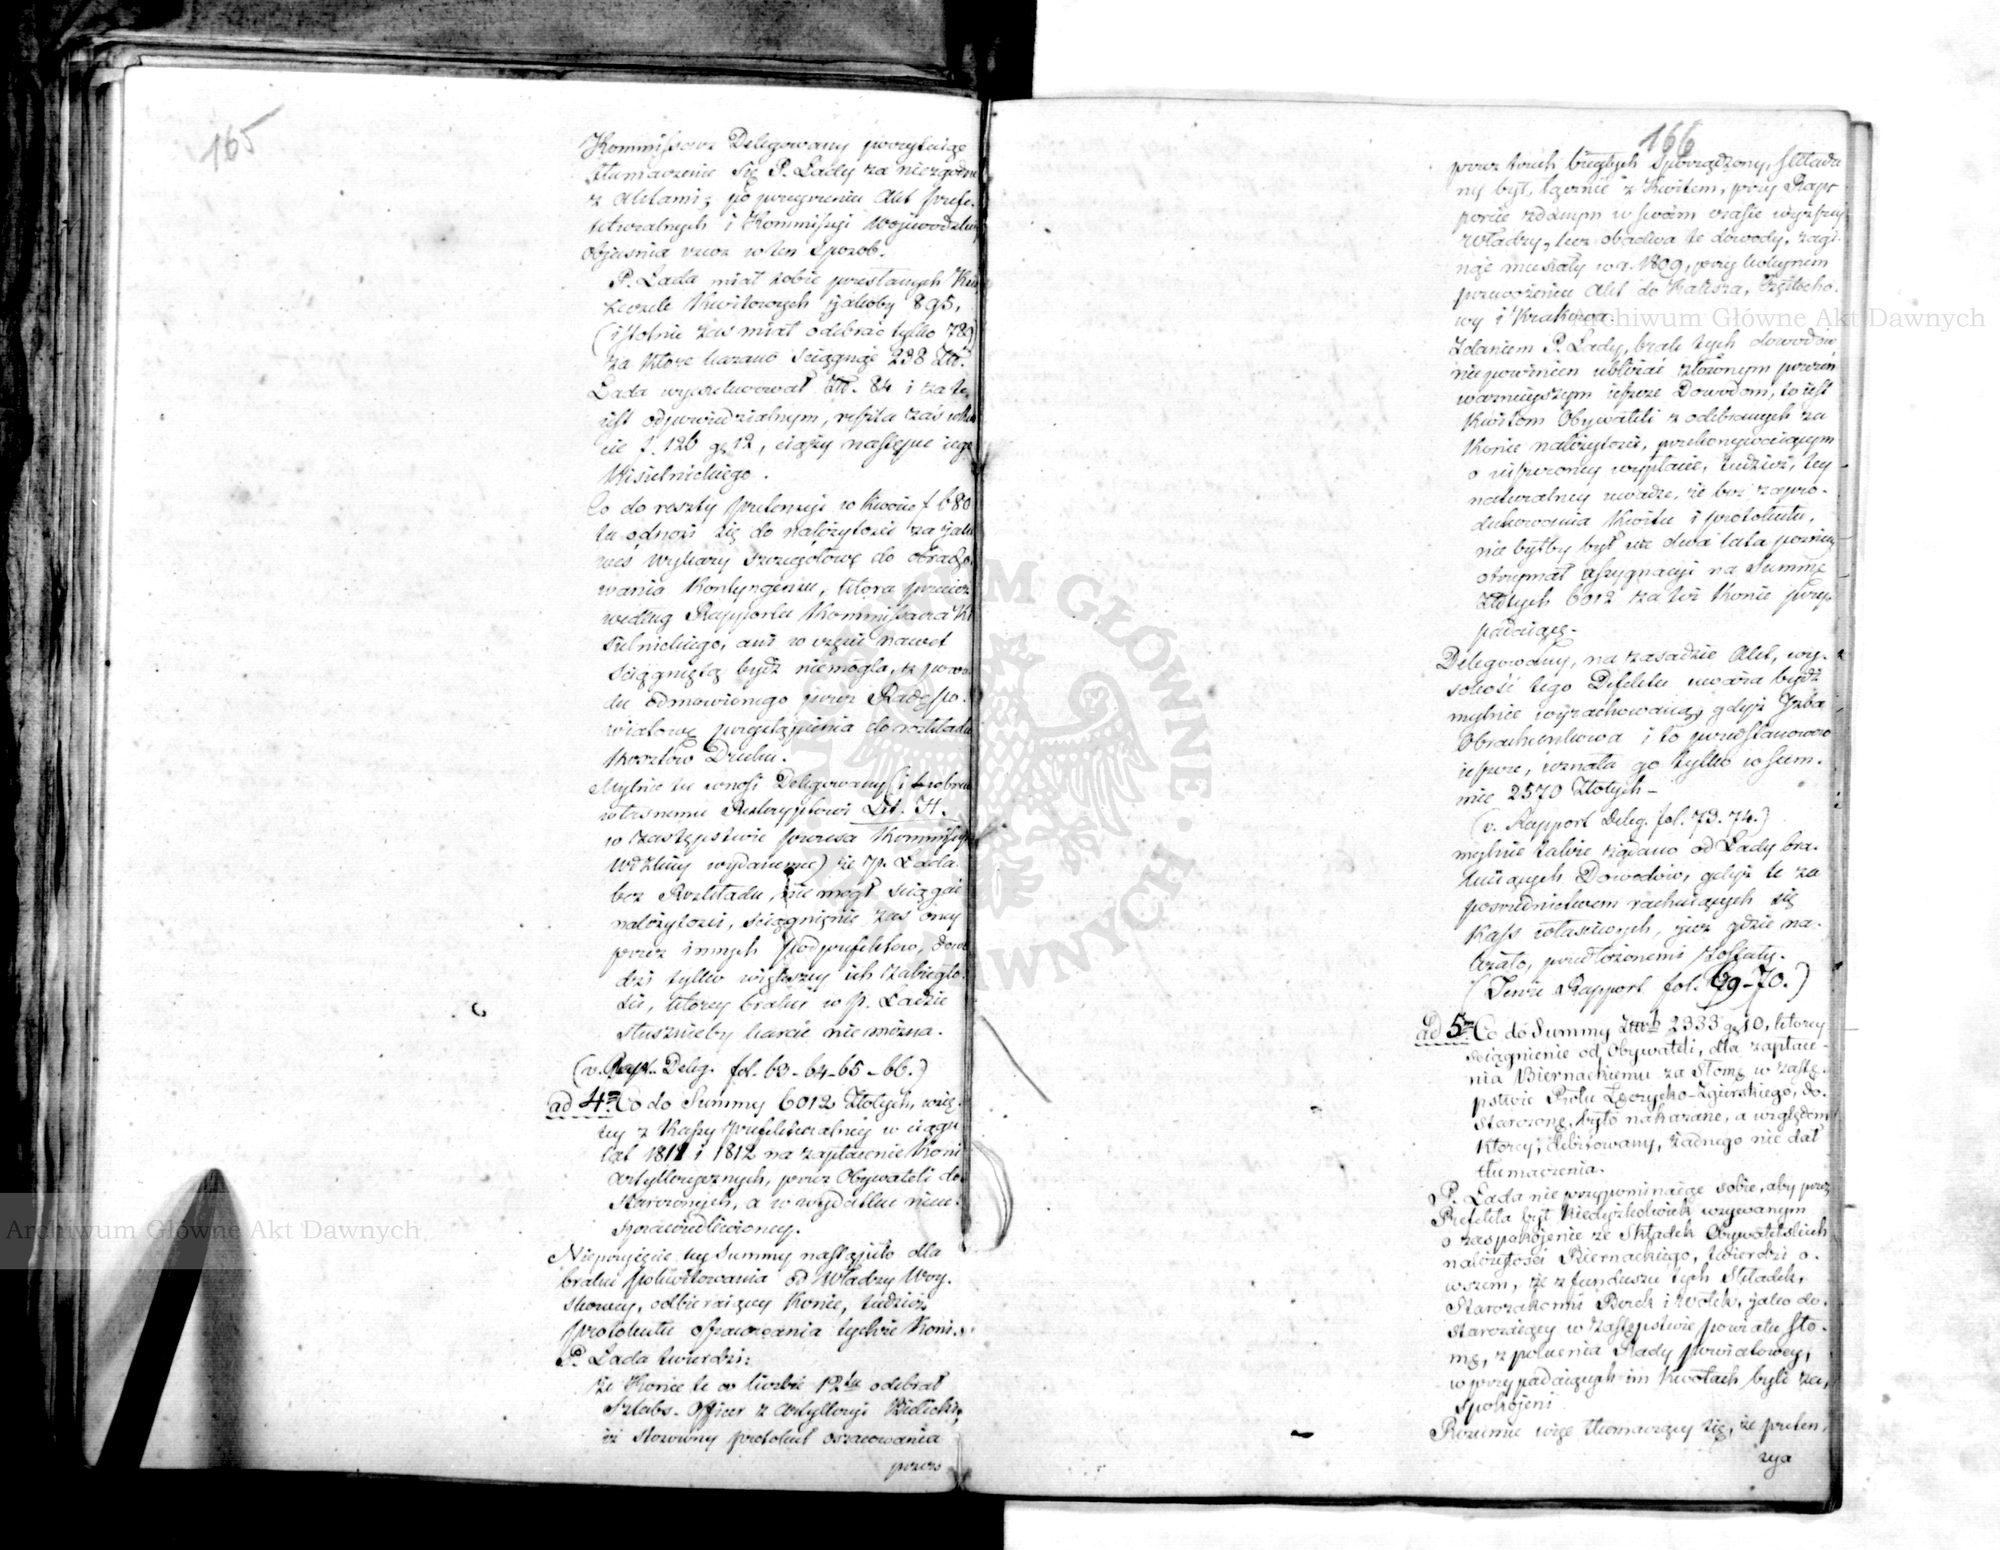 165
Kommissarz Delegowany poczytując
tłumaczenie się P. Łady za niezgodne
z Aktami; po przeyrzeniu Akt Prefe-
kturalnych i Kommissyi
Objaśnia rzecz w ten sposób.
P. Łada miał sobie przesłanych
Kwitowych jakoby 895,
(istotnie zaś miał odebrać tylko 780)
za które kazano ściągnąć 238 Złt.
Łada wyexekwował Złt. 84 i za te
iest odpowiedzialnym, reszta zaś
cie f. 126 gr 12, ciąży następcę iego
Kisielnickiego.
Co do reszty pretensyi w kwocie f 680
ta odnosi się do należytości za
wykazy szczegółowe do
wania Kontyngensu, która
według Rapportu Kommissarza
sielnickiego, ani w części nawet
ściągniętą bydź niemogła, z powo-
du odmówionego przez Radę Po-
wiatową przystąpienia do rozkładu
kosztów Druku.
Mylnie tu wnosi Delegowany (i
własnemu Reskryptowi Lit. H.
w zastępstwie Prezesa Kommissyi
wydanemu) że P. Łada
bez Rozkładu, nie mógł ściągać
należytości, ściągnienie zaś oney
przez innych Podprefektów, dowo-
dzi tylko większey ich zabiegło-
ści, którey braku w P. Ładzie
słusznieby karcić nie można.
(v. Rapp. Deleg. fol. 63-64-65-66.)
ad 4m Co do Summy 6012 Złotych, wzię-
tey z Kassy Prefekturalney w ciągu
lat 1811 i 1812 na zapłacenie Koni
Artyllerycznych, przez Obywateli do-
starczonych, a w wydatku nieu-
sprawiedliwioney.
Nieprzyięcie tey Summy nastąpiło dla
braku pokwitowania od Władzy Woy-
skowey, odbieraiącey Konie, tudzież
protokułu oszacowania tychże Koni.
P. Łada twierdzi:
że Konie te w liczbie 12tu odebrał
Sztabs-Officer z Artylleryi
iż stosowny protokuł oszacowania
przez
166
przez trzech biegłych sporządzony, składa-
ny był, łącznie z Kwitem, przy Rap-
porcie zdanym w swoim czasie wyższey
Władzy, lecz obadwa te dowody, zagi-
nąć musiały w r. 1809, przy kolejnem
przewożeniu Akt do Kalisza, Częstocho-
wy i Krakowa.
Zdaniem P. Łady, brak tych dowodów
niepowinien ubliżać złożonym
ważnieyszym ieszcze Dowodom, to iest
Kwitom Obywateli z odebranych za
Konie należytości, przekonywaiącym
o uiszczoney wypłacie, tudzież, tey
naturalney uwadze, że bez zapro-
dukowania Kwitu i protokułu,
nie byłby był we dwa lata pozniey
otrzymał Assygnacyi na Summę
Złotych 6012 za też Konie przy-
padaiącą.
Delegowany, na zasadzie Akt, wy-
sokość tego Defektu uważa bydź
mylnie wyrachowaną, gdyż Izba
Obrachunkowa i to
ieszcze, uznała go tylko w Sum-
mie 2570 Złotych -
(v. Rapport Deleg. fol. 73. 74.)
mylnie także żądano od Łady bra-
kuiących Dowodów, gdyż te za
pośrednictwem rachuiących się
Kass właściwych, iuż gdzie na-
leżało, przedłożonemi zostały.
(Tenże Rapport fol. 69-70.)
ad 5m Co do Summy Złotych 2333 gr 10, którey
ściągnienie od Obywateli, dla zapłace-
nia Biernackiemu za Słomę w zastę-
pstwie Ptu Łęczycko-Zgierskiego, do-
starczoną, było nakazane, a względem
którey, debitowany, żadnego nie dał
tłumaczenia.
P. Łada nie przypominaiąc sobie, aby przez
Prefekta był kiedyżkolwiek wzywanym
o zaspokojenie ze Składek Obywatelskich
należytości Biernackiego, twierdzi o-
wszem, że z funduszu tych Składek,
Starozakonni Berek i Wołek, jako do-
starczaiący w zastępstwie powiatu sło-
mę, z polecenia Rady Powiatowey,
w przypadaiących im kwotach byli za-
spokojeni.
Rozumie więc tłomaczący się, że preten-
sya
Archiwum Główne Akt Dawnych
Archiwum Główne Akt Dawnych